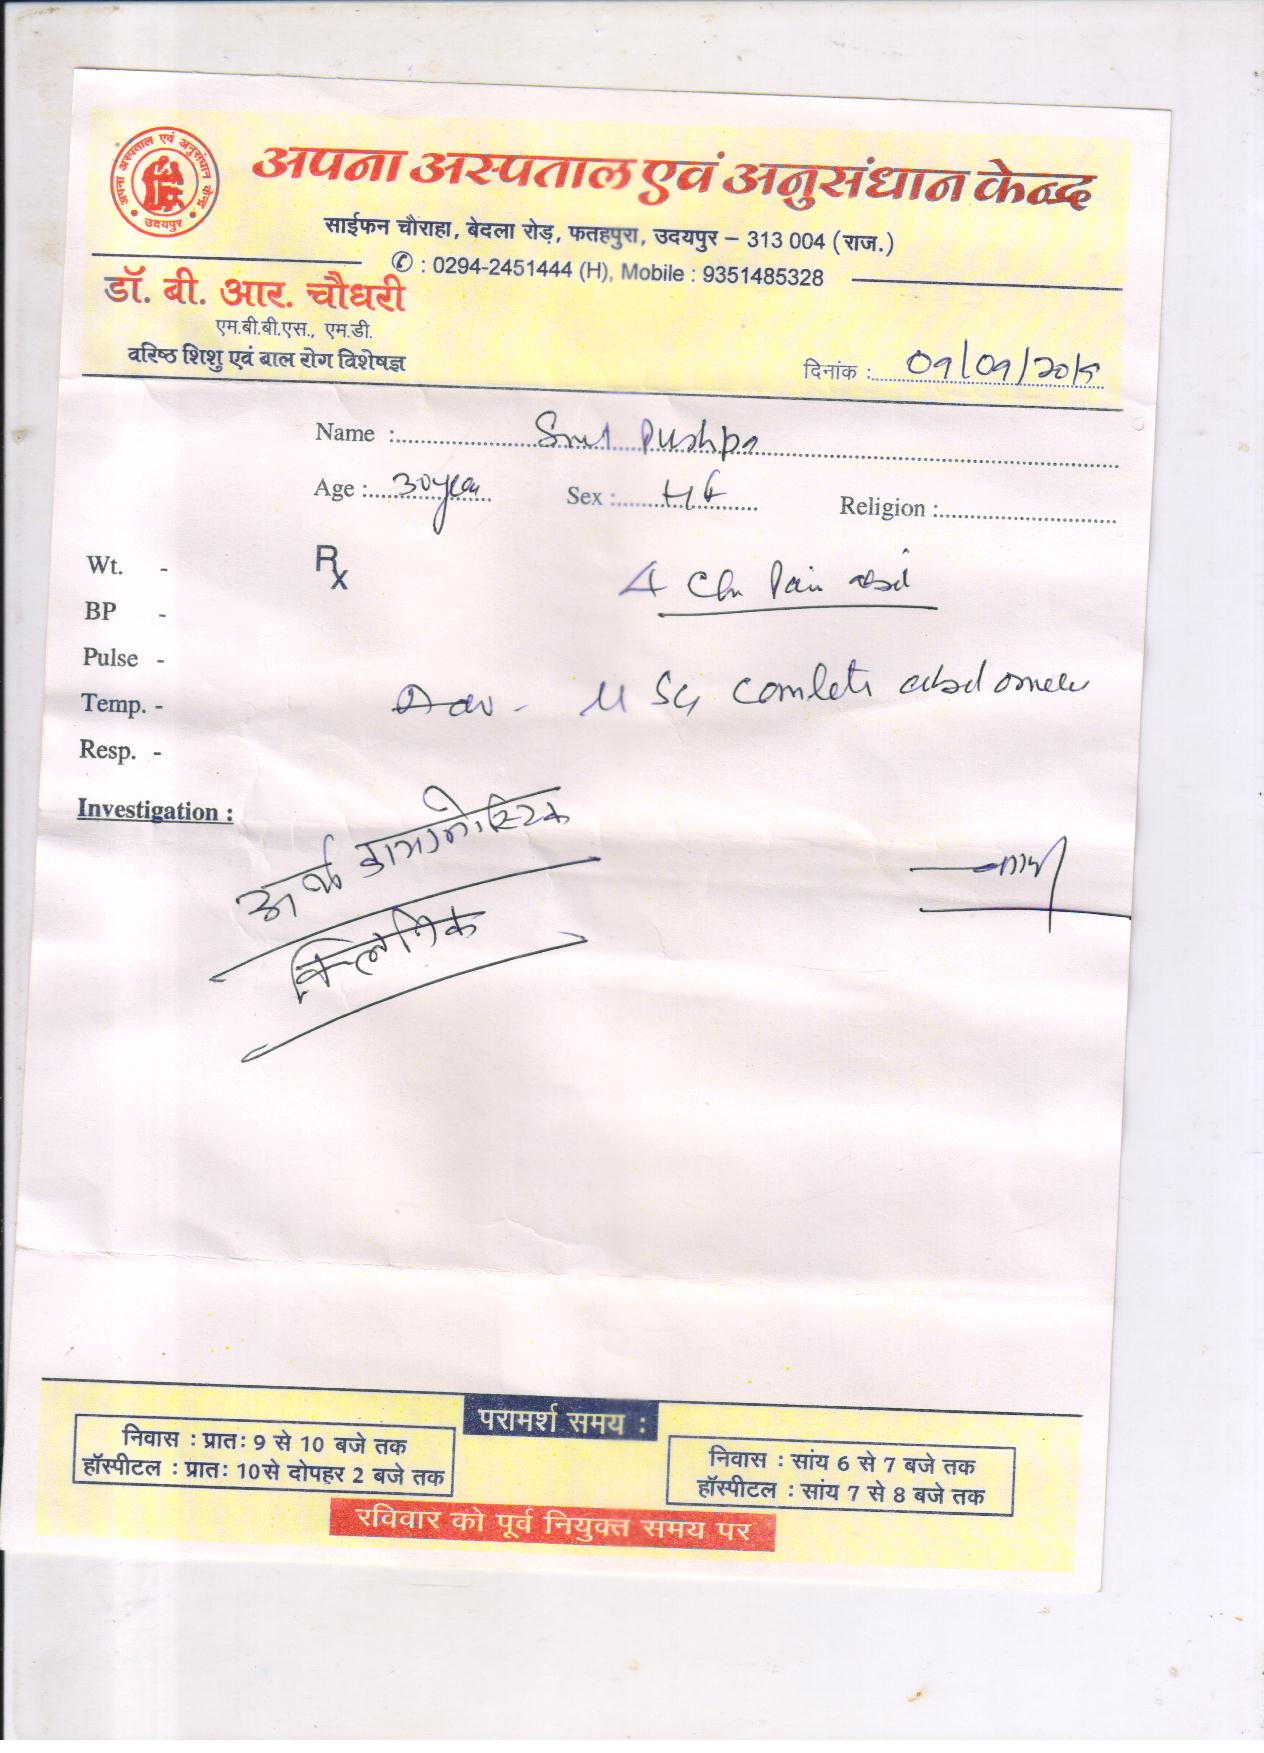 अपना अस्पताल एवं अनुसंधान केन्द्र
अपना अस्पताल एवं अनुसंधान केन्द्र
उदयपुर
साईफन चौराहा, बेदला रोड़, फतहपुरा, उदयपुर – 313 004 (राज.)
✆ : 0294-2451444 (H), Mobile : 9351485328
डॉ. बी. आर. चौधरी
एम.बी.बी.एस., एम.डी.
वरिष्ठ शिशु एवं बाल रोग विशेषज्ञ
दिनांक : 09/09/2015
Name : Smt Pushpa
Age : 30 year Sex : Religion :
Wt. - Rx
Pain abd
BP -
Pulse -
Temp. - Adv - USG comlete abdomen
Resp. -
Investigation :
अर्थ डायग्नोस्टिक
क्लिनिक
परामर्श समय :
निवास : प्रातः 9 से 10 बजे तक
हॉस्पीटल : प्रातः 10 से दोपहर 2 बजे तक
निवास : सांय 6 से 7 बजे तक
हॉस्पीटल : सांय 7 से 8 बजे तक
रविवार को पूर्व नियुक्त समय पर